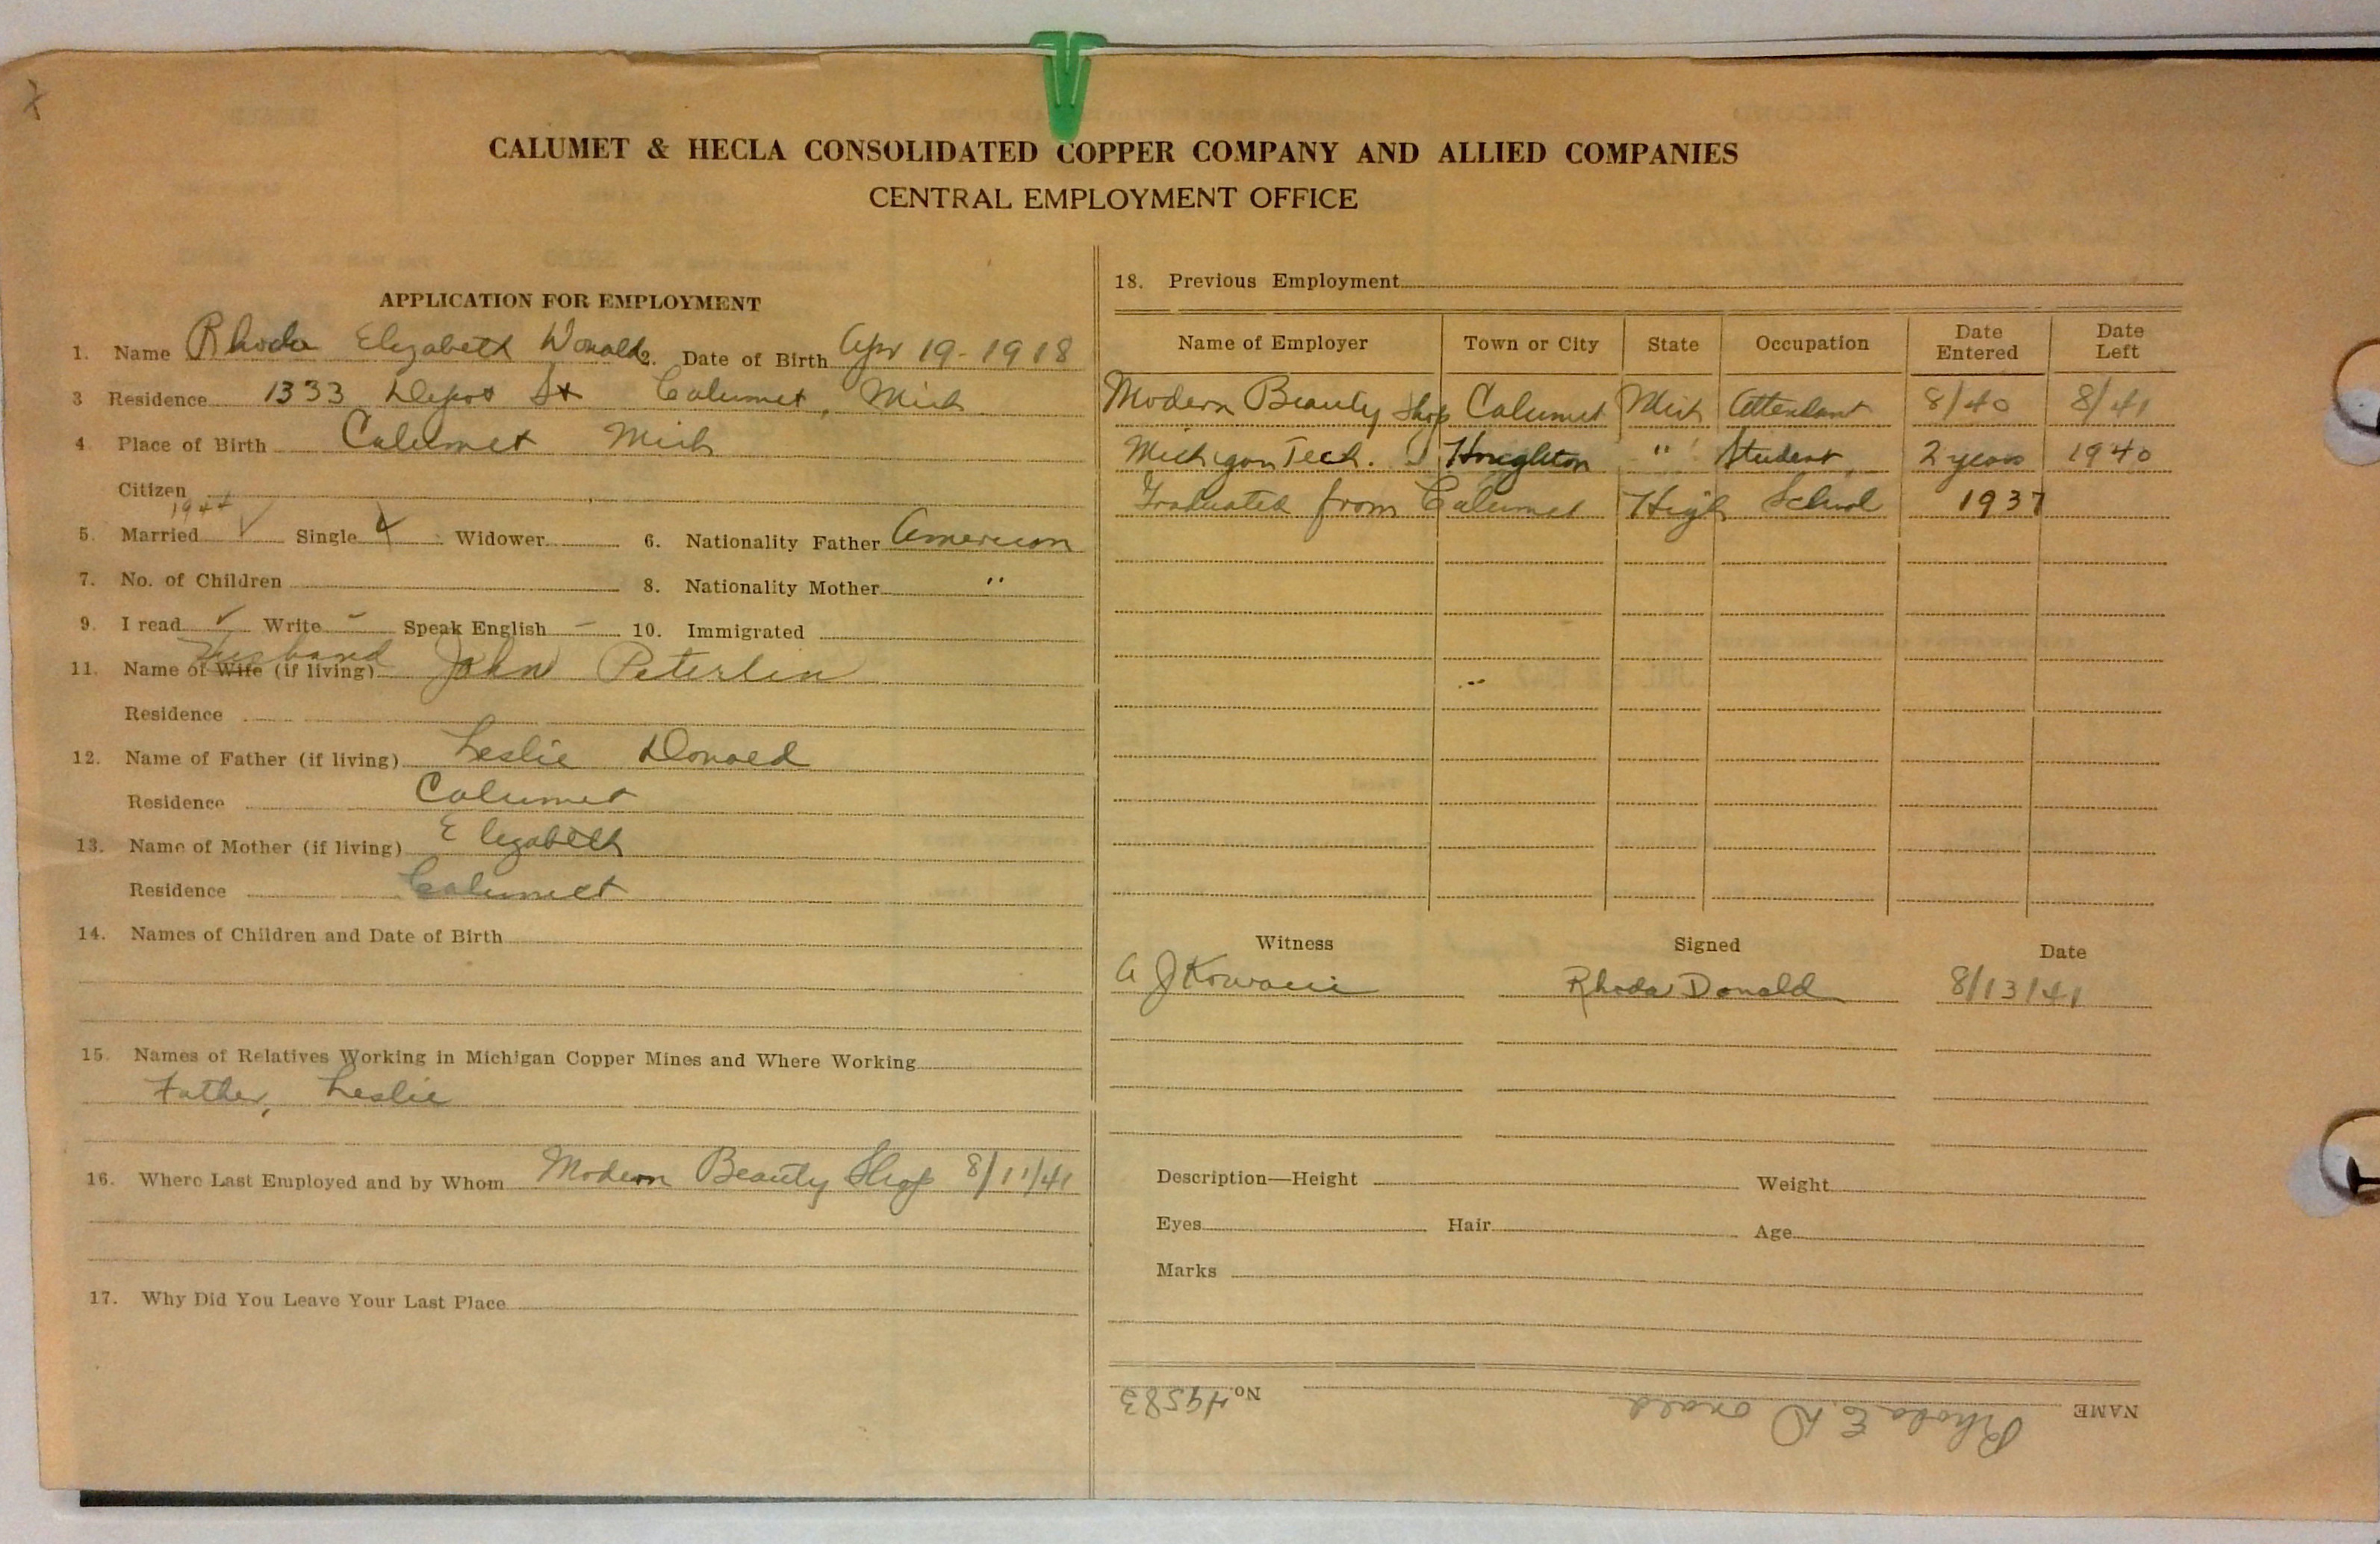 CALUMET & HECLA CONSOLIDATED COPPER COMPANY AND ALLIED COMPANIES
CENTRAL EMPLOYMENT OFFICE
APPLICATION FOR EMPLOYMENT
1. Name Rhoda Elizabeth Donald 2. Date of Birth Apr 19-1918
3 Residence 1333 Depot St Calumet, Mich
4. Place of Birth Calumet Mich
Citizen
1944
5. Married ✓ Single ✓ Widower 6. Nationality Father American
7. No. of Children 8. Nationality Mother "
9. I read ✓ Write - Speak English - 10. Immigrated
Husband
11. Name of Wife (if living) John Peterlin
Residence
12. Name of Father (if living) Leslie Donald
Residence Calumet
13. Name of Mother (if living) Elizabeth
Residence Calumet
14. Names of Children and Date of Birth
15. Names of Relatives Working in Michigan Copper Mines and Where Working
Father, Leslie
16. Where Last Employed and by Whom Modern Beauty Shop 8/11/41
17. Why Did You Leave Your Last Place
18. Previous Employment
Name of Employer Town or City State Occupation Date Entered Date Left
Modern Beauty Shop Calumet Mich Attendant 8/40 8/41
Michigan Tech. Houghton " Student 2 years 1940
Graduated from Calumet High School 1937
Witness Signed Date
A J Rhoda Donald 8/13/41
Description—Height Weight
Eyes Hair Age
Marks
NAME Rhoda E. Donald No. 49583